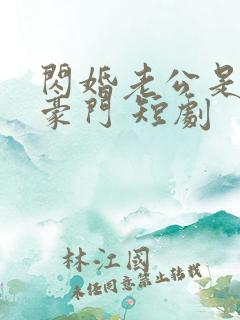 閃婚老公是
豪門 短劇
林江國
未經同意禁止轉載